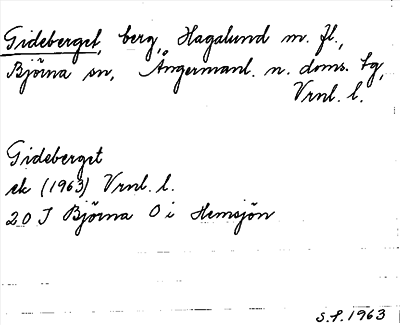 Gideberget, berg, Hagalund m. fl.,
Björna sn, Ångermanl. n. doms. tg,
Vrnl. l.
Gideberget
ek (1963) Vrnl. l.
20 J Björna O i Hemsjön
S.f. 1963